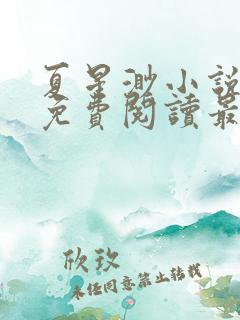 夏星渺小說
免費閱讀最
欣玫
未经同意禁止转载